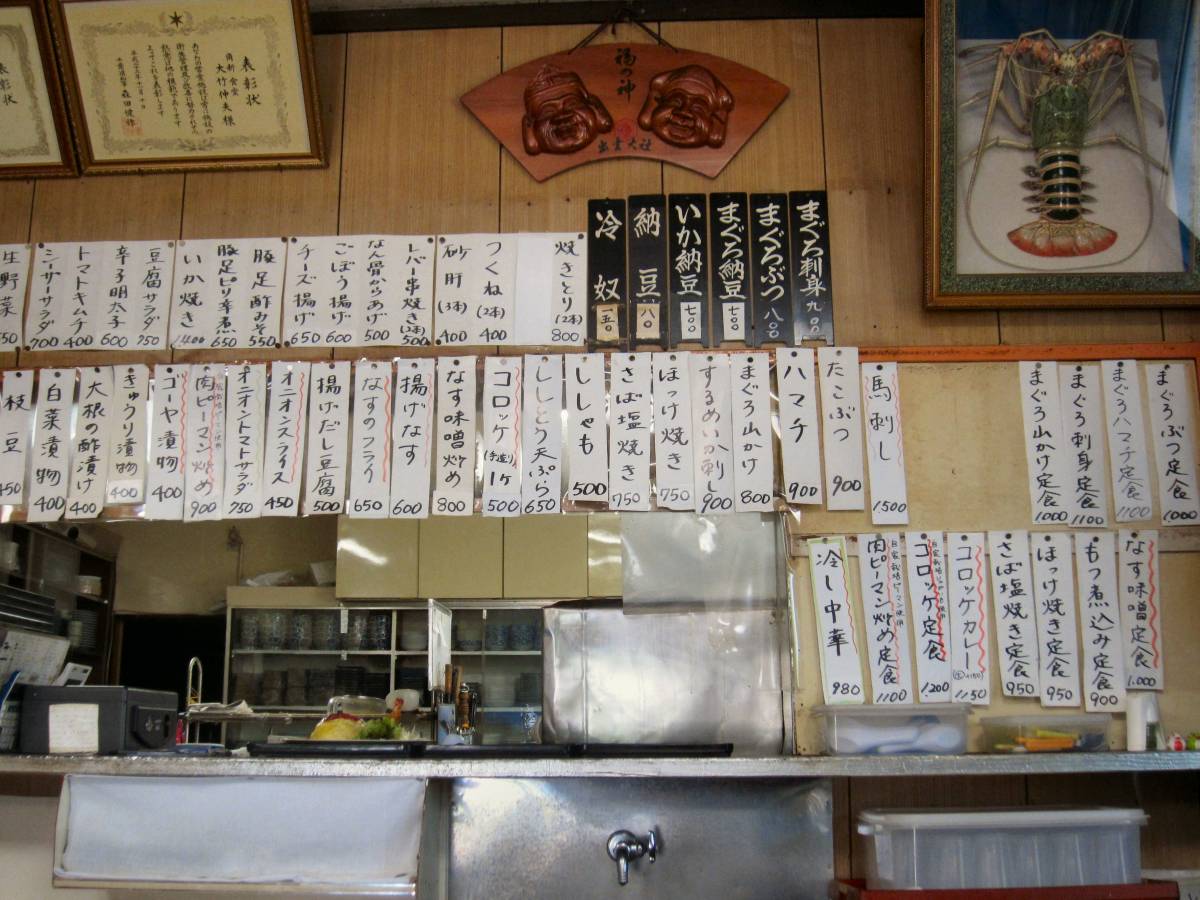 表彰状
角新食堂
大竹伸夫様
表彰状
福の神
出雲大社
まぐろ刺身 九〇〇
まぐろぶつ 八〇〇
まぐろ納豆 七〇〇
いか納豆 七〇〇
納豆
冷奴 一五〇
焼きとり(2本) 800
つくね(2本) 400
砂肝(3本) 400
レバー串焼き(2本) 500
なん骨からあげ 500
ごぼう揚げ 600
チーズ揚げ 650
豚足酢みそ 550
豚足ピリ辛煮 650
いか焼き 1400
豆腐サラダ 750
辛子明太子 600
トマトキムチ 400
シーサーサラダ 700
生野菜
馬刺し 1500
たこぶつ 900
ハマチ 900
まぐろ山かけ 800
するめいか刺し 900
ほっけ焼き 750
さば塩焼き 750
ししゃも 500
ししとう天ぷら 650
コロッケ(手造り)1ヶ 500
なす味噌炒め 800
揚げなす 600
なすのフライ 650
揚げだし豆腐 500
オニオンスライス 450
オニオントマトサラダ 750
肉ピーマン炒め 900
ゴーヤ漬物 400
きゅうり漬物 400
大根の酢漬け 400
白菜漬物 400
枝豆 450
まぐろぶつ定食 1000
まぐろハマチ定食 1100
まぐろ刺身定食 1100
まぐろ山かけ定食 1000
なす味噌定食 1.000
もつ煮込み定食 900
ほっけ焼き定食 950
さば塩焼き定食 950
コロッケカレー 1150
コロッケ定食 1200
肉ピーマン炒め定食 1100
自家栽培ピーマン使用
冷し中華 980